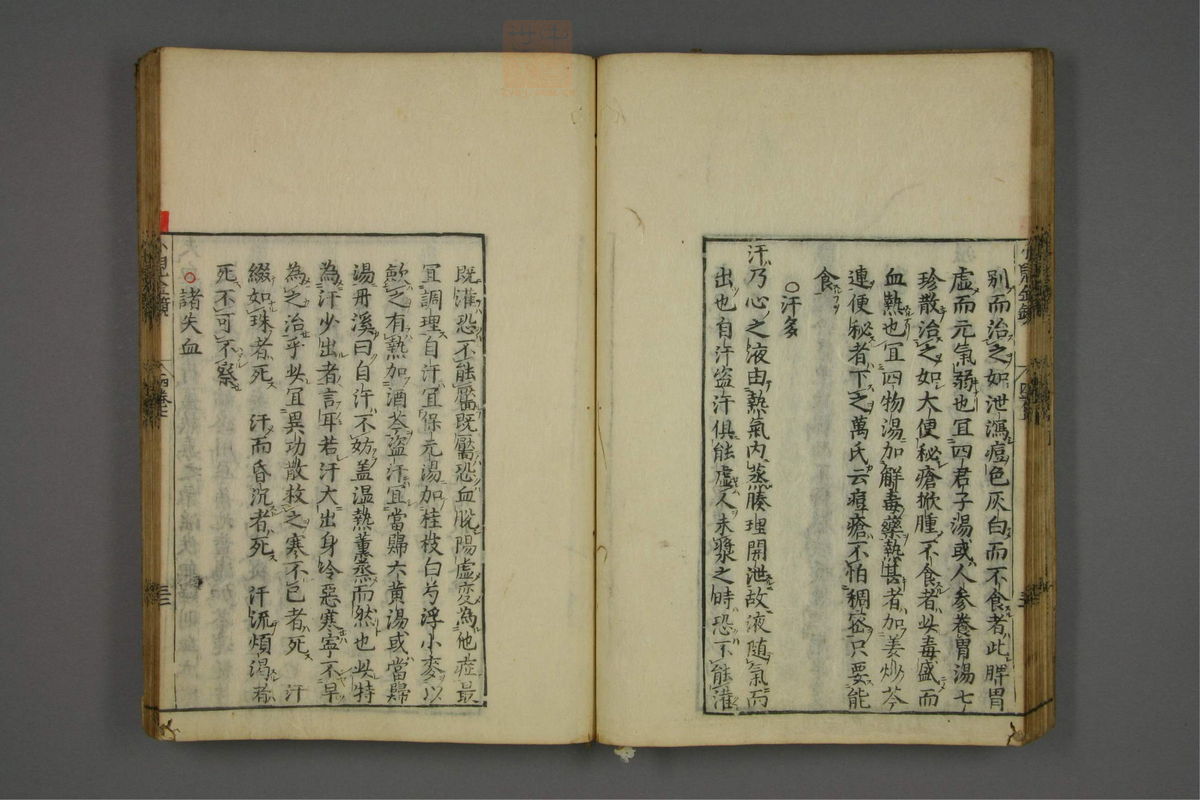 別而治之如泄瀉痘色灰白而不食者此脾胃
虛而元氣弱也宜四君子湯或人參養胃湯七
珍散治之如大便秘瘡掀腫不食者此毒盛而
血熱也宜四物湯加解毒藥熱甚者加姜炒芩
連便秘者下之萬氏云痘瘡不怕稠密只要能
食
○汗多
汗乃心之液由熱氣內蒸腠理開泄故液随氣而
出也自汗盗汗俱能虛人未漿之時恐不能灌
既灌恐不能靨既靨恐血脫陽虛変為他症最
宜調理自汗宜保元湯加桂枝白芍浮小麥以
歛之有熱加酒芩盗汗宜當歸六黄湯或當歸
湯丹溪曰自汗不妨盖温熱薰蒸而然也此特
為汗少出者言耳若汗大出身冷惡寒寧不早
為之治乎此宜異功散救之寒不已者死 汗
綴如珠者死 汗而昏沉者死 汗流煩渴者
死不可不察
○諸失血